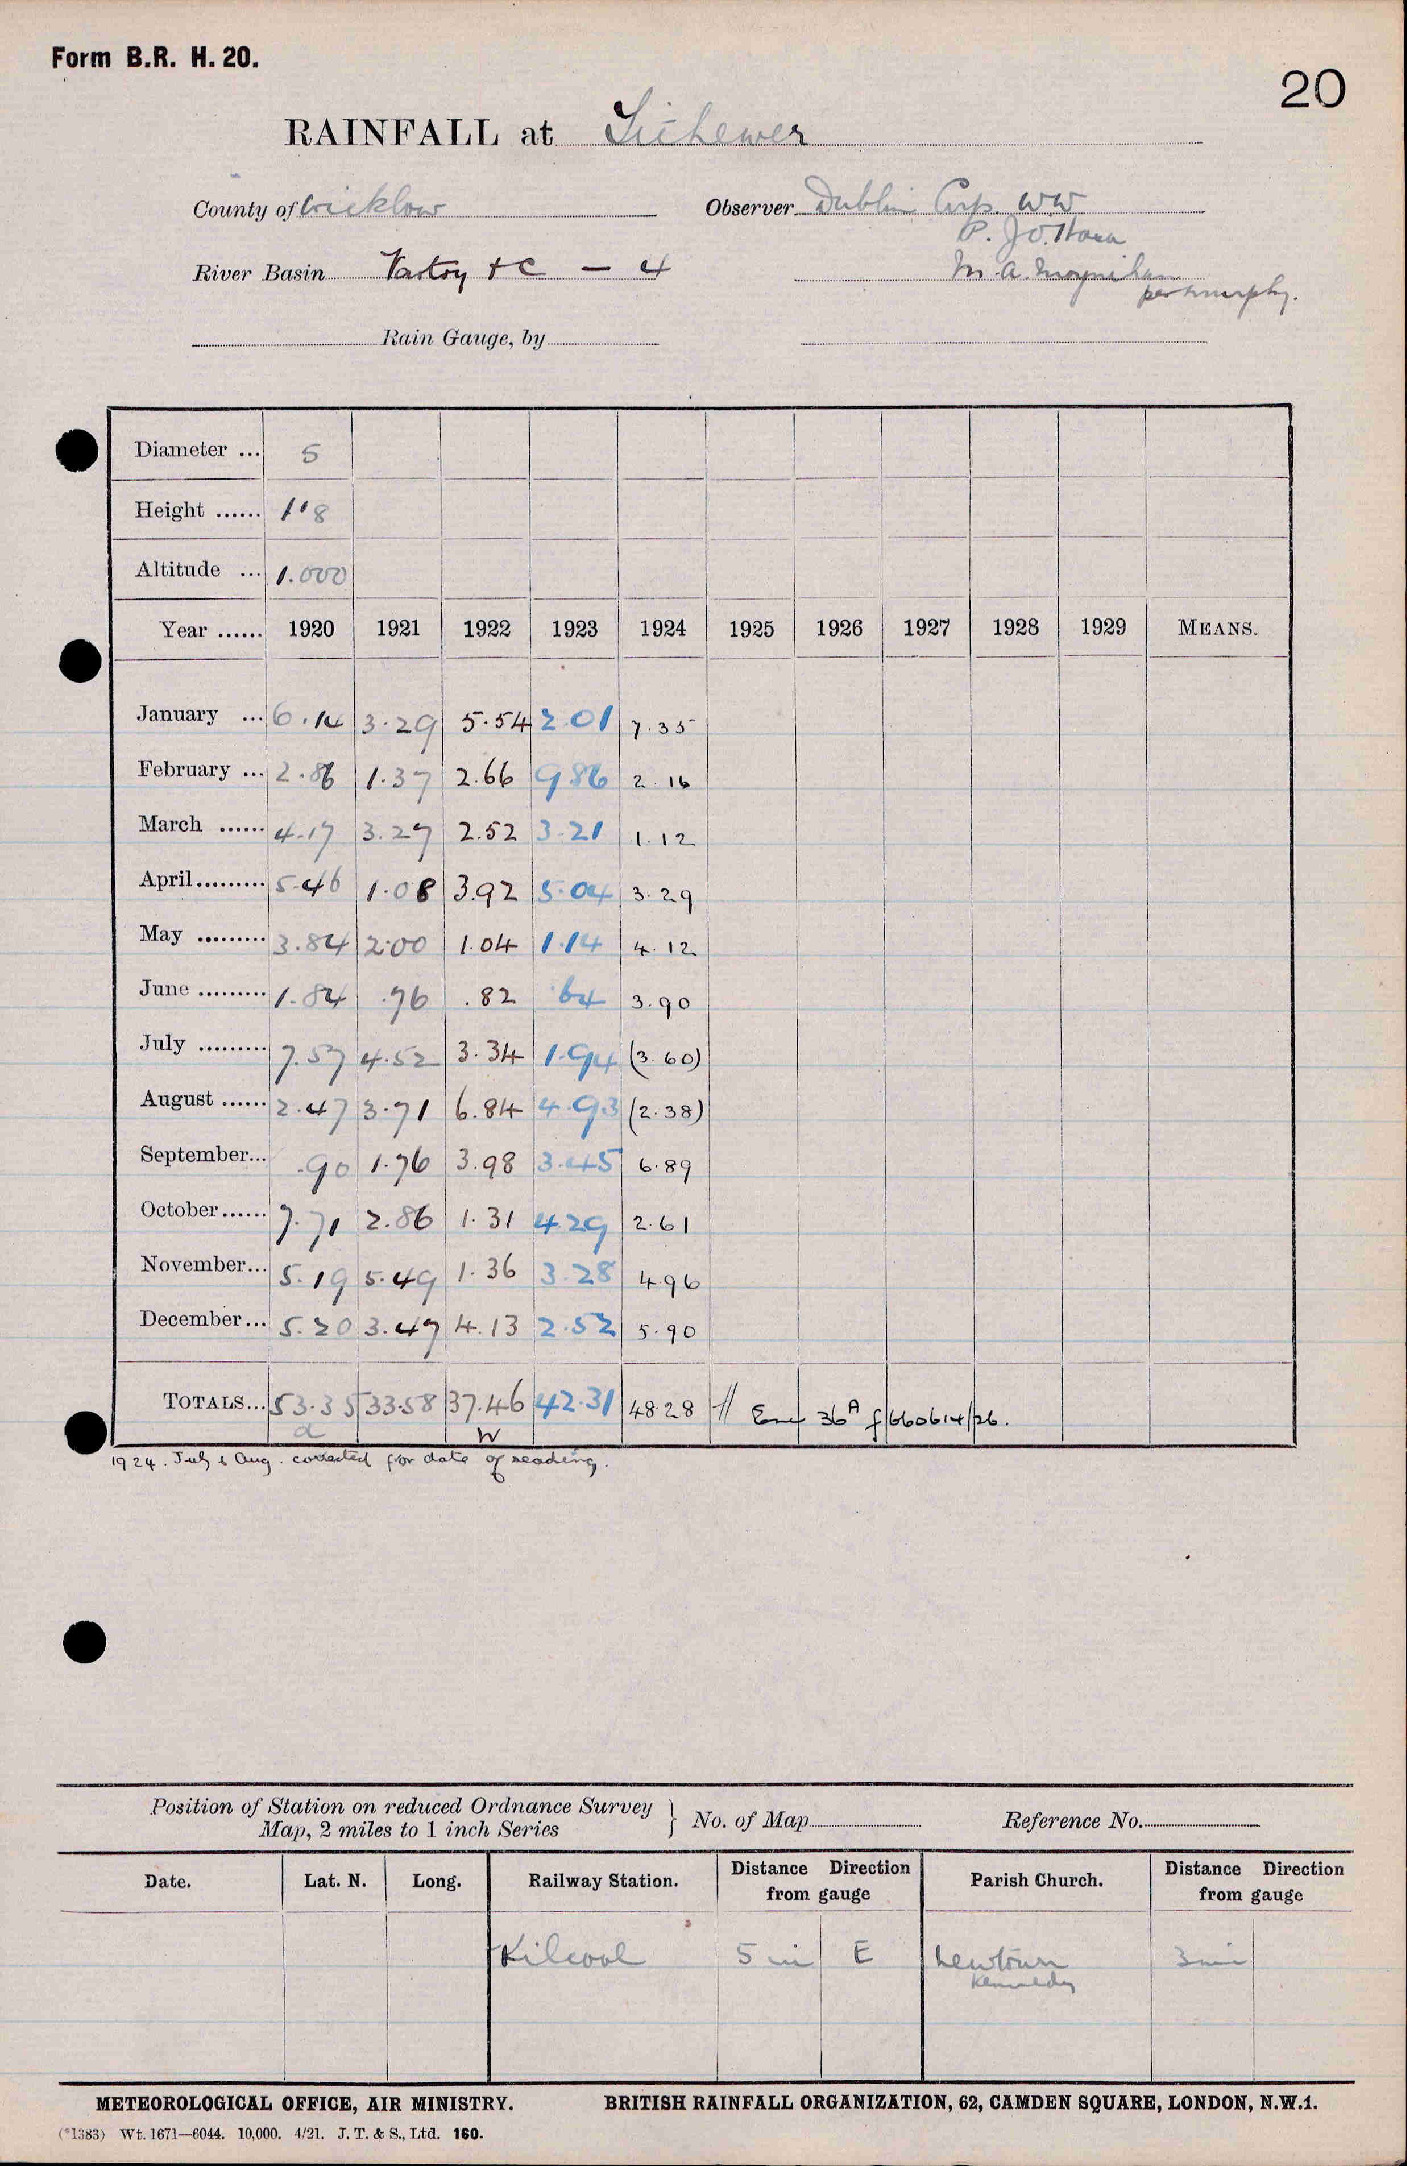 Form B.R. H. 20.
20
RAINFALL at
County of Wicklow Observer Dublin Corp. WW
P. J O'Hara
River Basin Vartry + C — 4 M. A. Moynihan
per Murphy.
Rain Gauge, by
Diameter ... 5
Height ...... 1'8
Altitude ... 1.000
Year ...... 1920 1921 1922 1923 1924 1925 1926 1927 1928 1929 MEANS.
January ... 6.14 3.29 5.54 2.01 7.35
February ... 2.86 1.37 2.66 9.86 2.16
March ...... 4.17 3.27 2.52 3.21 1.12
April......... 5.46 1.08 3.92 5.04 3.29
May ......... 3.84 2.00 1.04 1.14 4.12
June ......... 1.84 .76 .82 .64 3.90
July ......... 7.57 4.52 3.34 1.94 (3.60)
August ...... 2.47 3.71 6.84 4.93 (2.38)
September... .90 1.76 3.98 3.45 6.89
October...... 7.71 2.86 1.31 4.29 2.61
November... 5.19 5.49 1.36 3.28 4.96
December... 5.20 3.47 4.13 2.52 5.90
TOTALS... 53.35 33.58 37.46 42.31 48.28 // 36A f 660614/26.
a W
1924. July & Aug. corrected for date of reading.
Position of Station on reduced Ordnance Survey } No. of Map Reference No.
Map, 2 miles to 1 inch Series
Date. Lat. N. Long. Railway Station. Distance Direction from gauge Parish Church. Distance Direction from gauge
Kilcool 5 mi E Newtown 3 mi
Kennedy
METEOROLOGICAL OFFICE, AIR MINISTRY. BRITISH RAINFALL ORGANIZATION, 62, CAMDEN SQUARE, LONDON, N.W.1.
(*1383) Wt. 1671—6044. 10,000. 4/21. J. T. & S., Ltd. 160.